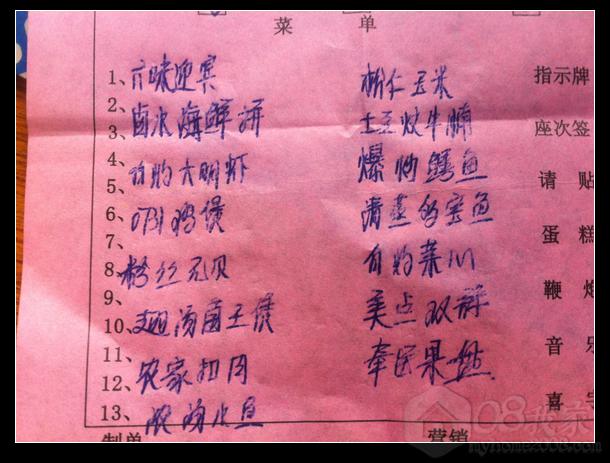 菜 单
1、六味迎宾 松仁玉米 指示牌
2、
3、卤水海鲜拼 土豆炆牛腩 座次签
4、
5、白灼大明虾 爆炒鳝鱼 请 贴
6、鸡煲 清蒸多宝鱼
7、 蛋 糕
8、粉丝元贝 白灼菜心
9、 鞭 炮
10、翅汤菌王煲 美点双辉
11、 音 乐
12、农家扣肉 果盘
13、鱼 喜 字
制单 营销
08我家
myhome2008.com